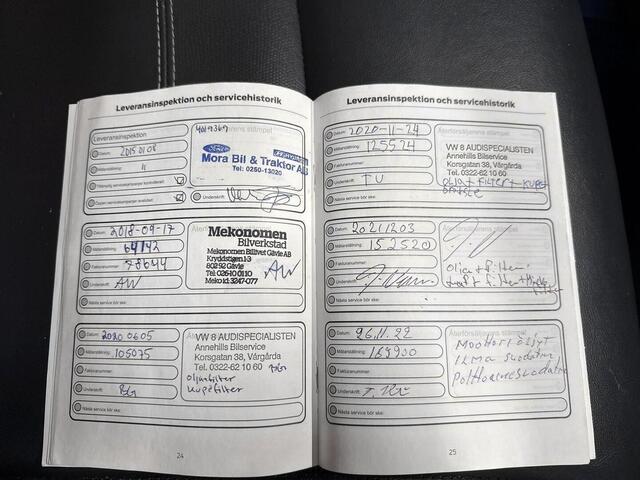 Leveransinspektion och servicehistorik
Leveransinspektion
Datum: 2015 01 08
Mätarställning: 11
Underskrift:
Återförsäljarens stämpel
Ford
Mora Bil & Traktor AB
Tel: 0250-13020
Underskrift:
Datum: 2018-09-17
Mätarställning: 64142
Fakturanummer: 78644
Underskrift: AW
Nästa service bör ske:
Mekonomen
Bilverkstad
Mekonomen Billivet Gävle AB
Kryddstigen 13
802 92 Gävle
Tel: 026-10 01 10
Meko id: 3247-077
AW
Datum: 2020 06 05
Mätarställning: 105075
Fakturanummer:
Underskrift: BG
Nästa service bör ske:
VW & AUDISPECIALISTEN
Annehills Bilservice
Korsgatan 38, Vårgårda
Tel. 0322-62 10 60
oljefilter
kupefilter
24
Leveransinspektion och servicehistorik
Datum: 2020-11-24
Mätarställning: 125524
Fakturanummer:
Underskrift: TU
Nästa service bör ske:
Återförsäljarens stämpel
VW & AUDISPECIALISTEN
Annehills Bilservice
Korsgatan 38, Vårgårda
Tel. 0322-62 10 60
olja+filter+kupe
Datum: 20211203
Mätarställning: 152520
Fakturanummer:
Underskrift:
Nästa service bör ske:
Olja+filter
Datum: 26.11.22
Mätarställning: 169900
Fakturanummer:
Underskrift:
Nästa service bör ske:
Återförsäljarens stämpel
Moottoriöljyt
ilma suodatin
Polttoainesuodatin
25